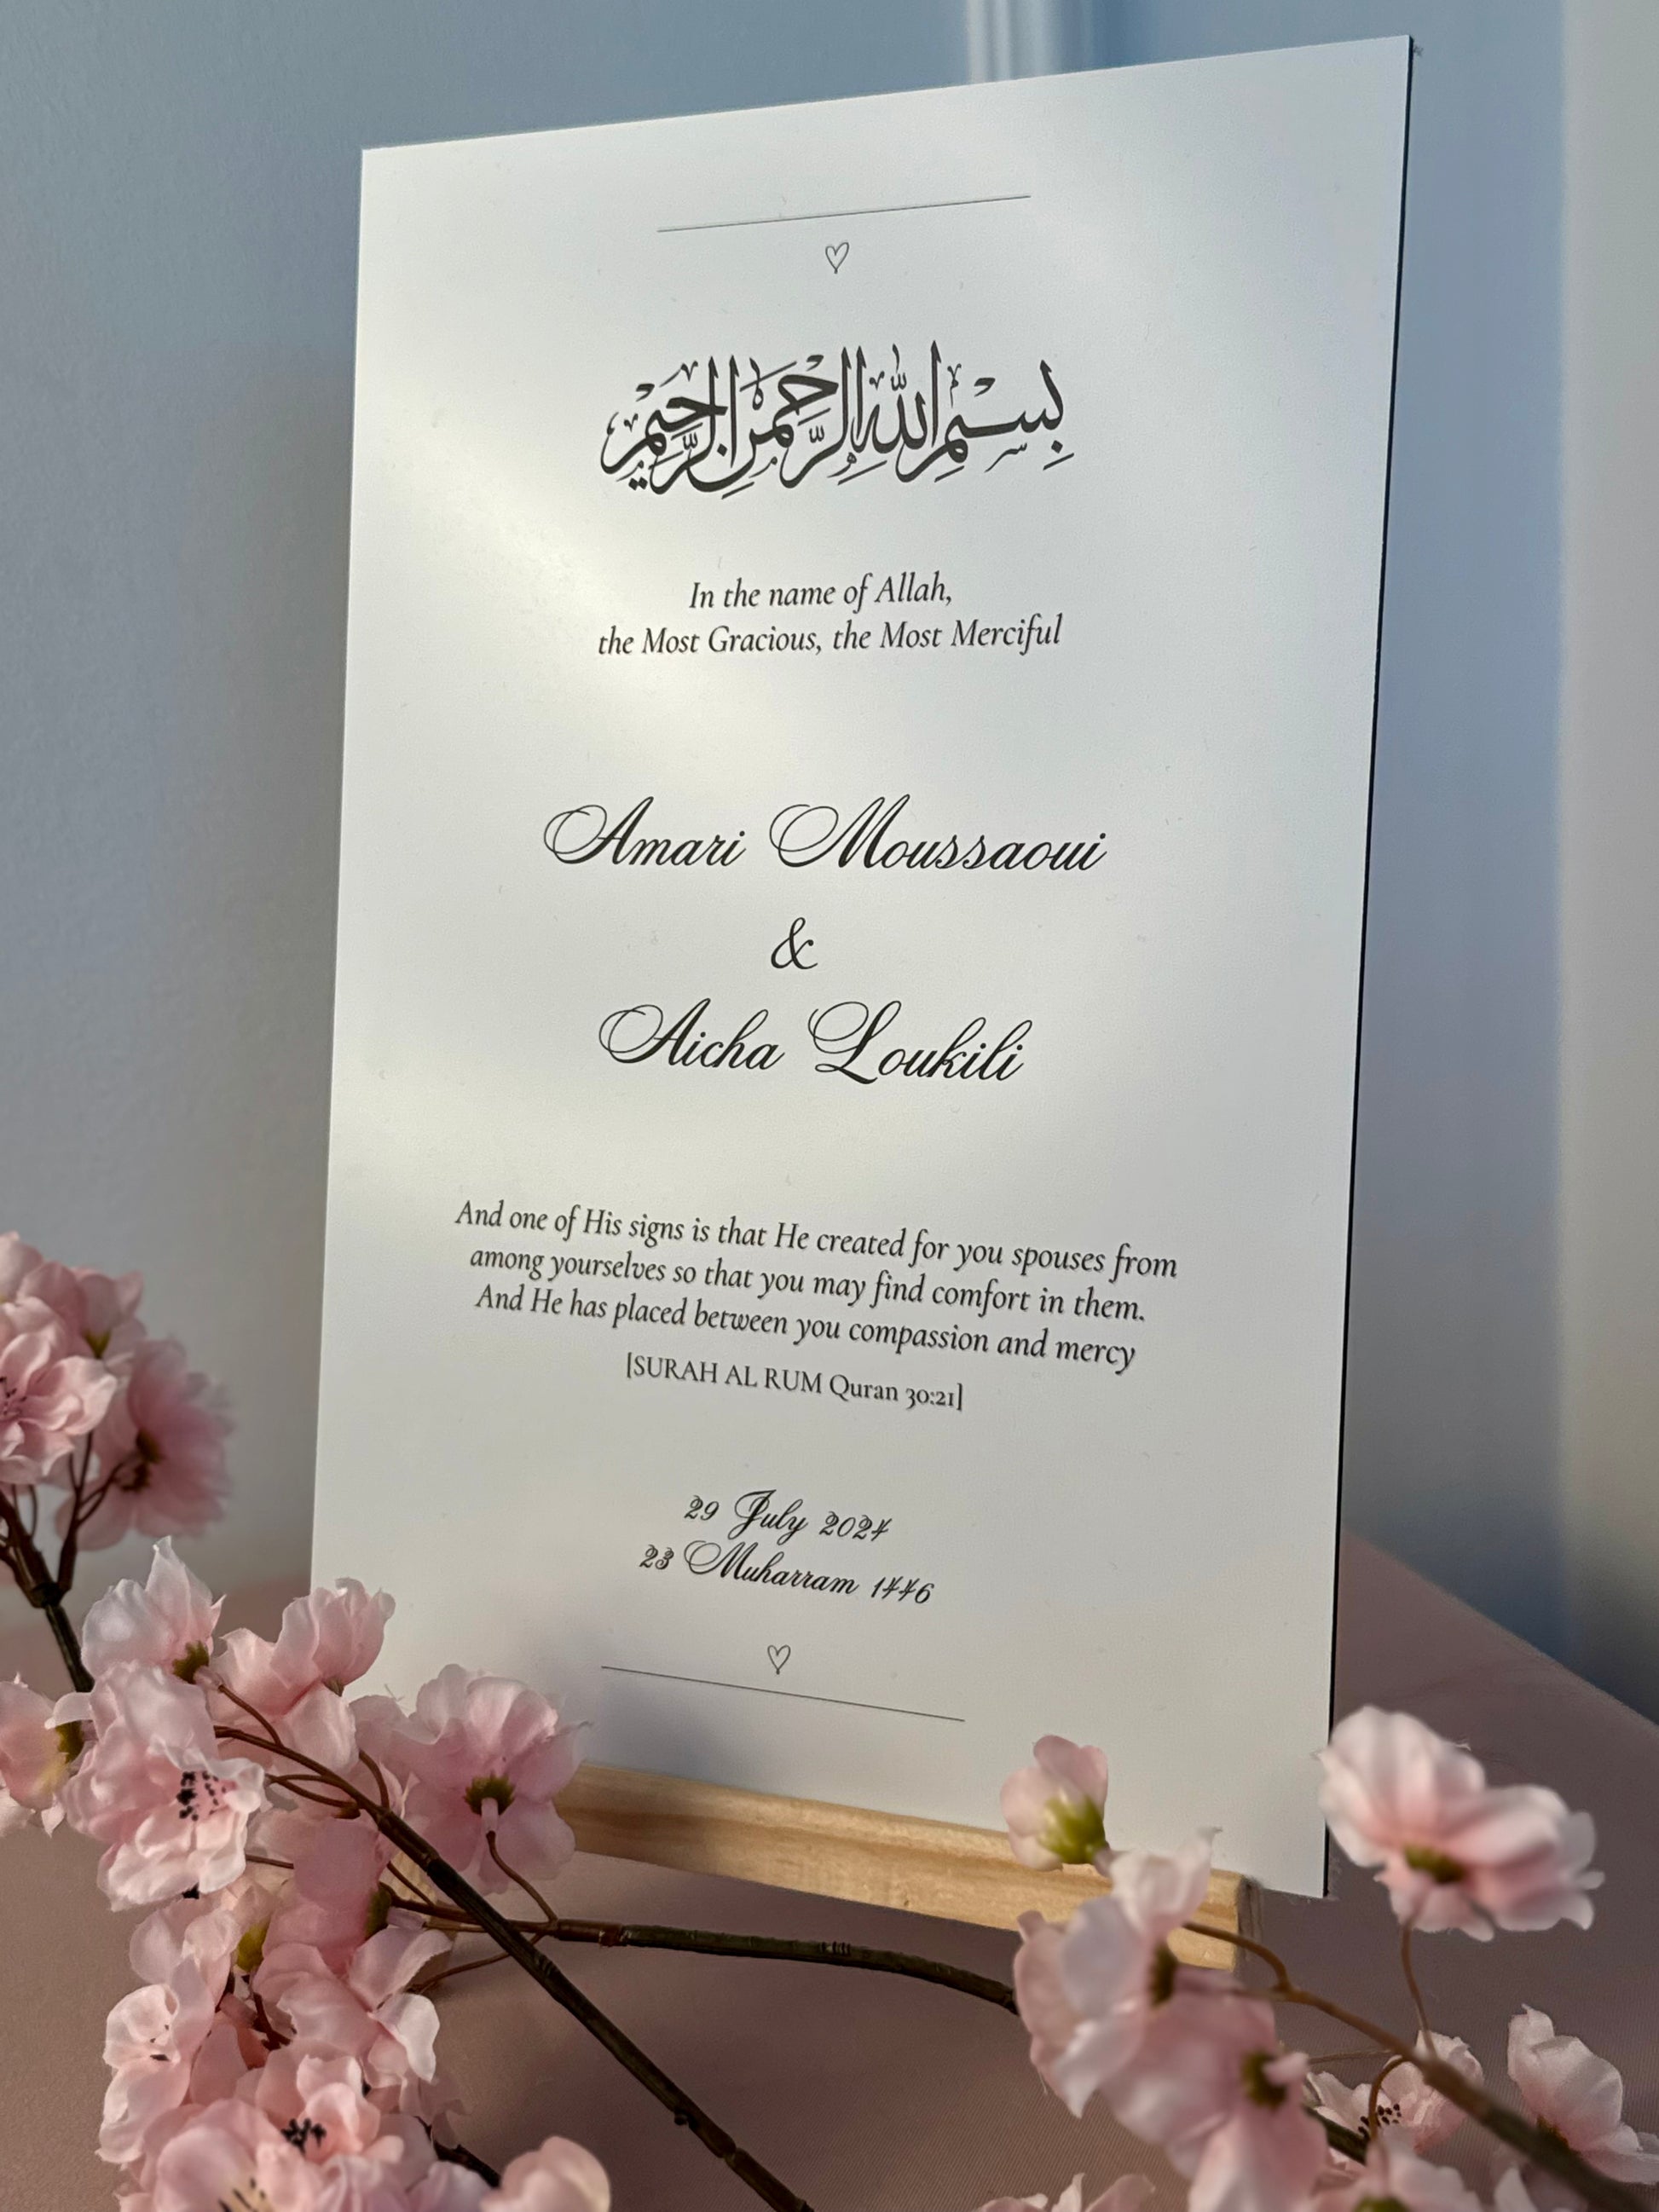 بِسْمِ اللَّهِ الرَّحْمَٰنِ الرَّحِيمِ
In the name of Allah,
the Most Gracious, the Most Merciful
Amari Moussaoui
&
Aicha Loukili
And one of His signs is that He created for you spouses from
among yourselves so that you may find comfort in them.
And He has placed between you compassion and mercy
[SURAH AL RUM Quran 30:21]
29 July 2024
23 Muharram 1446